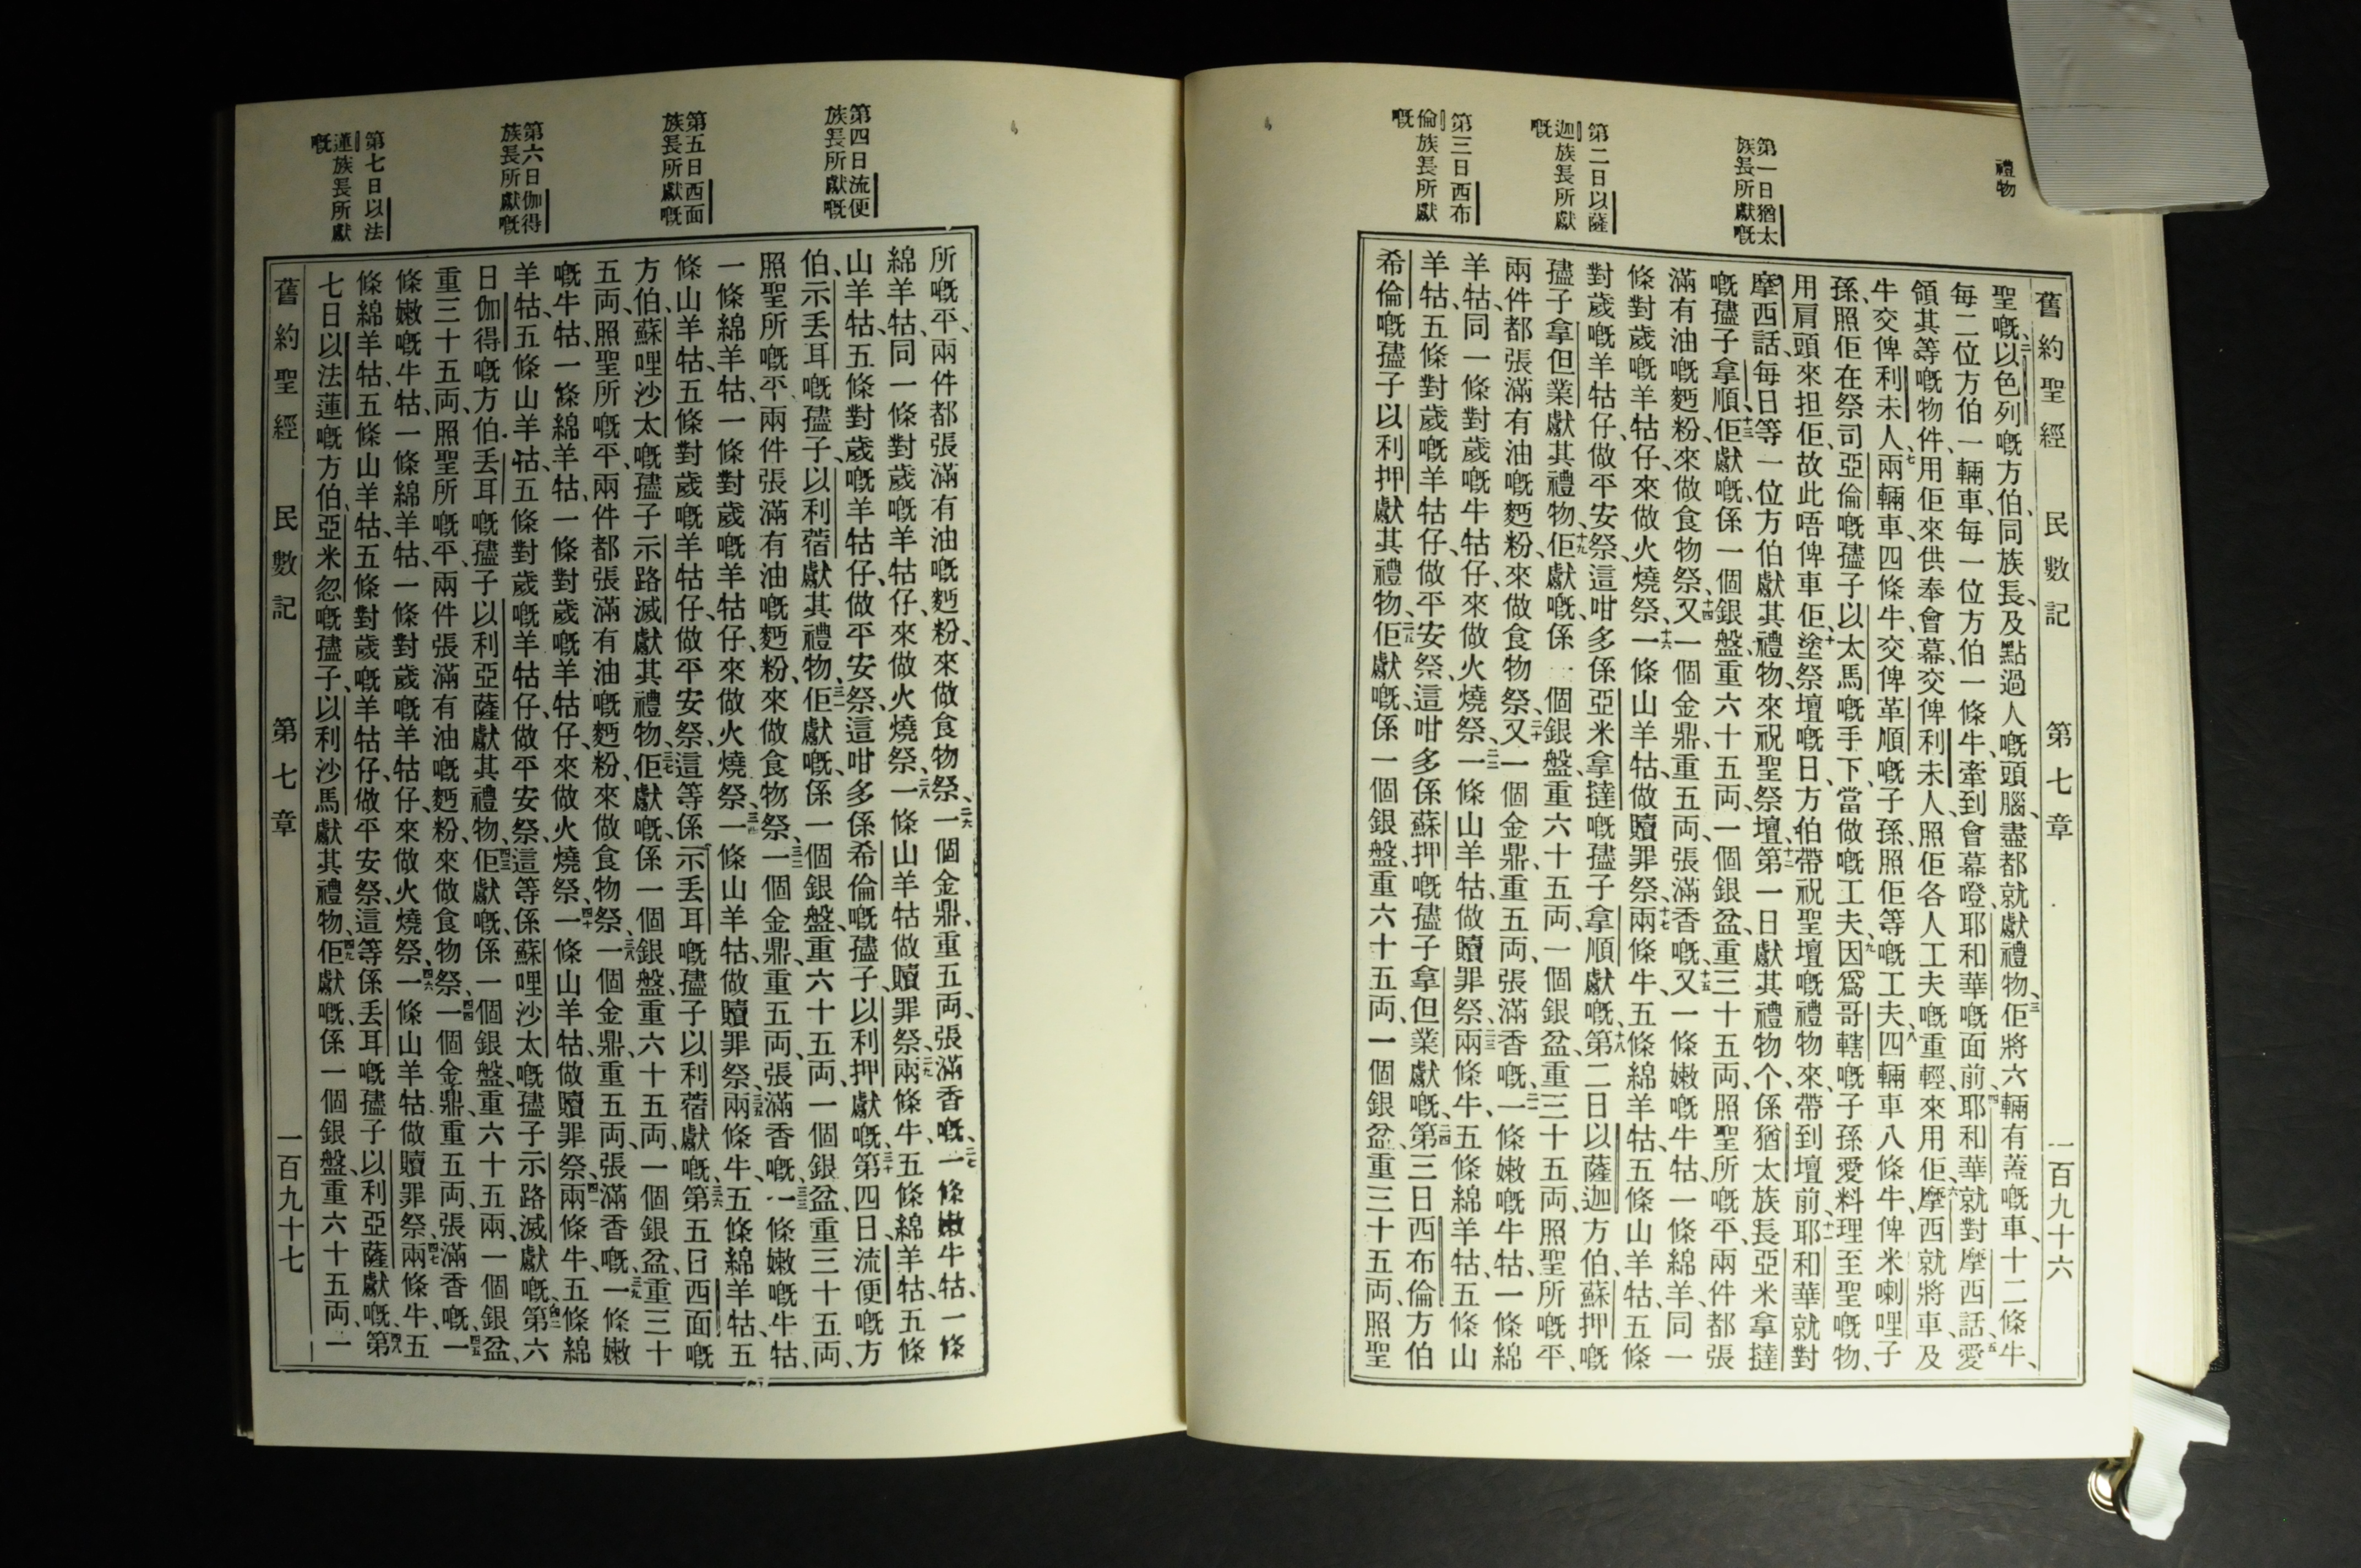 禮物
第一日猶太
族長所獻嘅
第二日以薩
迦族長所獻
嘅
第三日西布
倫族長所獻
嘅
舊約聖經 民數記 第七章 一百九十六
聖嘅、二以色列嘅方伯、同族長、及點過人嘅頭腦、盡都就獻禮物、三佢將六輛有蓋嘅車、十二條牛、
每二位方伯一輛車、每一位方伯一條牛、牽到會幕磴、耶和華嘅面前、四耶和華就對摩西話、五愛
領其等嘅物件、用佢來供奉會幕、交俾利未人照佢各人工夫嘅重輕、來用佢、六摩西就將車及
牛交俾利未人、七兩輛車四條牛交俾革順嘅子孫、照佢等嘅工夫、八四輛車八條牛、俾米喇哩子
孫、照佢在祭司亞倫嘅孻子以太馬嘅手下、當做嘅工夫、九因爲哥轄嘅子孫愛料理至聖嘅物、
用肩頭來担佢、故此唔俾車佢、十塗祭壇嘅日、方伯帶祝聖壇嘅禮物來、帶到壇前、十一耶和華就對
摩西話、每日等一位方伯獻其禮物、來祝聖祭壇、十二第一日獻其禮物个、係猶太族長亞米拿撻
嘅孻子拿順、十三佢獻嘅、係一個銀盤、重六十五両、一個銀盆、重三十五両、照聖所嘅平、兩件都張
滿有油嘅麪粉、來做食物祭、十四又一個金鼎、重五両、張滿香嘅、十五又一條嫩嘅牛牯、一條綿羊、同一
條對歲嘅羊牯仔、來做火燒祭、十六一條山羊牯、做贖罪祭、十七兩條牛、五條綿羊牯、五條山羊牯、五條
對歲嘅羊牯仔、做平安祭、這咁多係亞米拿撻嘅孻子拿順獻嘅、十八第二日以薩迦方伯、蘇押嘅
孻子拿但業獻其禮物、十九佢獻嘅、係一個銀盤、重六十五両、一個銀盆、重三十五両、照聖所嘅平、
兩件都張滿有油嘅麪粉、來做食物祭、二十又一個金鼎、重五両、張滿香嘅、二一一條嫩嘅牛牯、一條綿
羊牯、同一條對歲嘅牛牯仔、來做火燒祭、二二一條山羊牯、做贖罪祭、二三兩條牛、五條綿羊牯、五條山
羊牯、五條對歲嘅羊牯仔、做平安祭、這咁多係蘇押嘅孻子拿但業獻嘅、二四第三日西布倫方伯
希倫嘅孻子以利押獻其禮物、二五佢獻嘅、係一個銀盤、重六十五両、一個銀盆、重三十五両、照聖
第四日流便
族長所獻嘅
第五日西面
族長所獻嘅
第六日伽得
族長所獻嘅
第七日以法
蓮族長所獻
嘅
所嘅平、兩件都張滿有油嘅麪粉、來做食物祭、二六一個金鼎、重五両、張滿香嘅、二七一條嫩牛牯、一條
綿羊牯、同一條對歲嘅羊牯仔、來做火燒祭、二八一條山羊牯做贖罪祭、二九兩條牛、五條綿羊牯、五條
山羊牯、五條對歲嘅羊牯仔、做平安祭、這咁多係希倫嘅孻子、以利押獻嘅、三十第四日、流便嘅方
伯、示丢耳嘅孻子、以利蓿獻其禮物、三一佢獻嘅、係一個銀盤、重六十五両、一個銀盆、重三十五両、
照聖所嘅平、兩件張滿有油嘅麪粉、來做食物祭、三二一個金鼎、重五両、張滿香嘅、三三一條嫩嘅牛牯、
一條綿羊牯、一條對歲嘅羊牯仔、來做火燒祭、三四一條山羊牯、做贖罪祭、三五兩條牛、五條綿羊牯、五
條山羊牯、五條對歲嘅羊牯仔、做平安祭、這等係示丢耳嘅孻子以利蓿獻嘅、三六第五日西面嘅
方伯、蘇哩沙太嘅孻子示路滅獻其禮物、三七佢獻嘅、係一個銀盤、重六十五両、一個銀盆、重三十
五両、照聖所嘅平、兩件都張滿有油嘅麪粉、來做食物祭、三八一個金鼎、重五両、張滿香嘅、三九一條嫩
嘅牛牯、一條綿羊牯、一條對歲嘅羊牯仔、來做火燒祭、四十一條山羊牯、做贖罪祭、四一兩條牛、五條綿
羊牯、五條山羊牯、五條對歲嘅羊牯仔、做平安祭、這等係蘇哩沙太嘅孻子示路滅獻嘅、四二第六
日伽得嘅方伯、丢耳嘅孻子以利亞薩獻其禮物、四三佢獻嘅、係一個銀盤、重六十五兩、一個銀盆、
重三十五両、照聖所嘅平、兩件張滿有油嘅麪粉、來做食物祭、四四一個金鼎、重五両、張滿香嘅、四五一
條嫩嘅牛牯、一條綿羊牯、一條對歲嘅羊牯仔、來做火燒祭、四六一條山羊牯做贖罪祭、四七兩條牛、五
條綿羊牯、五條山羊牯、五條對歲嘅羊牯仔、做平安祭、這等係丢耳嘅孻子以利亞薩獻嘅、四八第
七日以法蓮嘅方伯、亞米忽嘅孻子、以利沙馬獻其禮物、四九佢獻嘅、係一個銀盤、重六十五両、一
舊約聖經 民數記 第七章 一百九十七